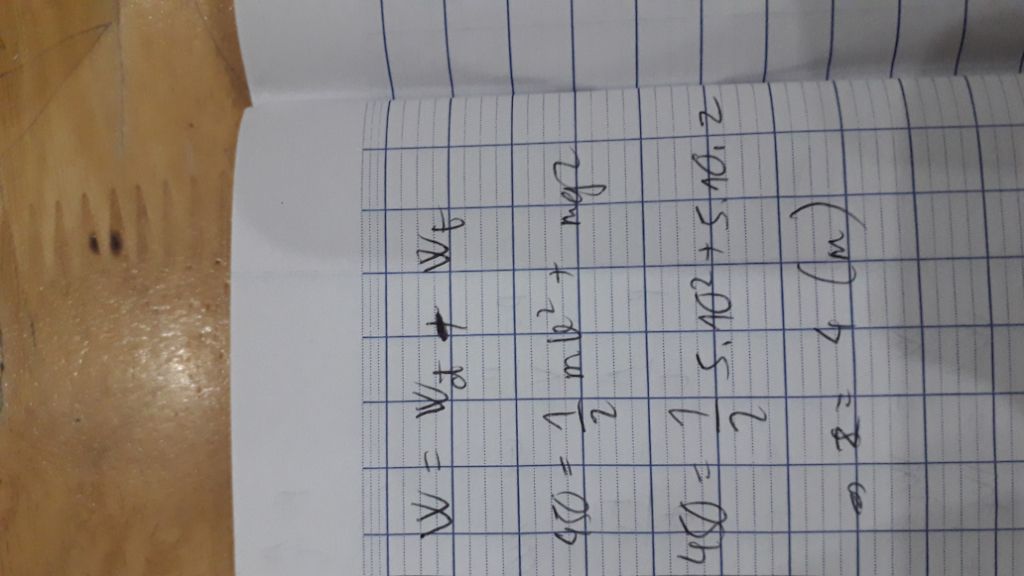 W = Wđ + Wt
450 = 1/2 mv² + mgz
450 = 1/2 5.10² + 5.10.z
⇒ z = 4 (m)